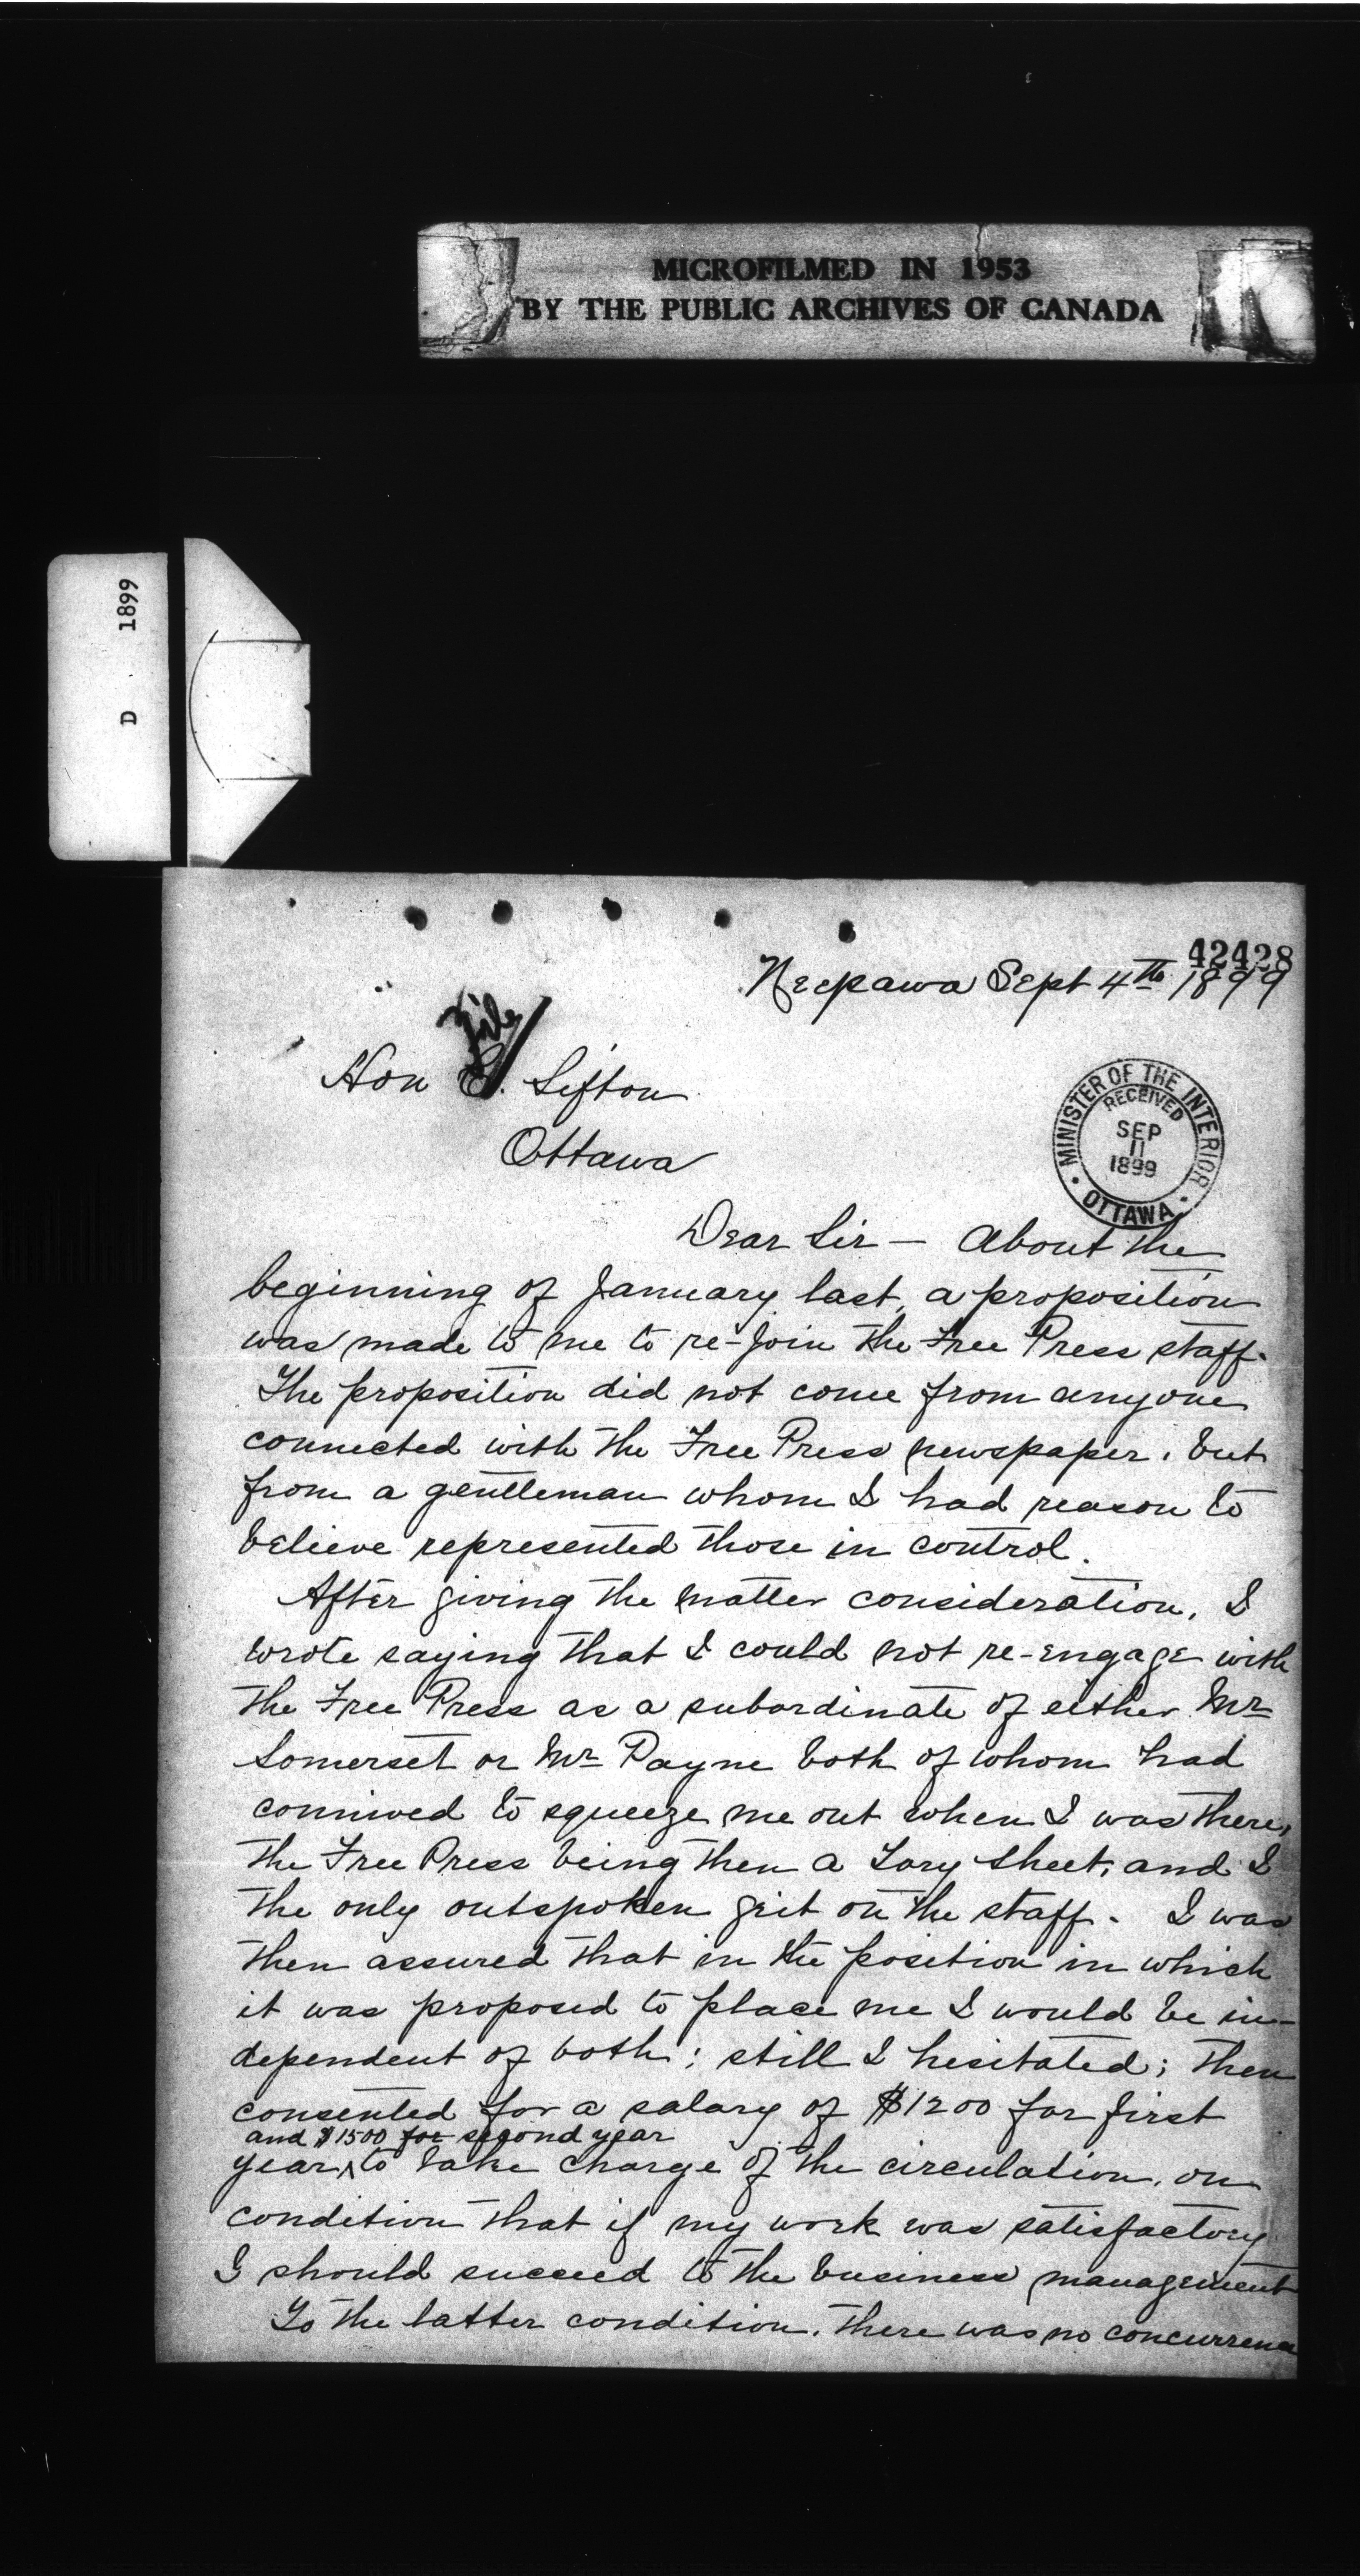 MICROFILMED IN 1953
BY THE PUBLIC ARCHIVES OF CANADA
D 1899
42428
Neepawa Sept 4th 1899
File
Hon C. Sifton
Ottawa
MINISTER OF THE INTERIOR
RECEIVED
SEP
11
1899
OTTAWA
Dear Sir — About the
beginning of January last, a proposition
was made to me to re-join the Free Press staff.
The proposition did not come from anyone
connected with the Free Press newspaper, but
from a gentleman whom I had reason to
believe represented those in control.
After giving the matter consideration, I
wrote saying that I could not re-engage with
the Free Press as a subordinate of either Mr
Somerset or Mr Payne both of whom had
connived to squeeze me out when I was there,
the Free Press being then a Tory sheet, and I
the only outspoken grit on the staff. I was
then assured that in the position in which
it was proposed to place me I would be in-
dependent of both; still I hesitated; then
consented for a salary of $1200 for first
and $1500 for second year
year, to take charge of the circulation, on
condition that if my work was satisfactory
I should succeed to the business management
To the latter condition, there was no concurrence